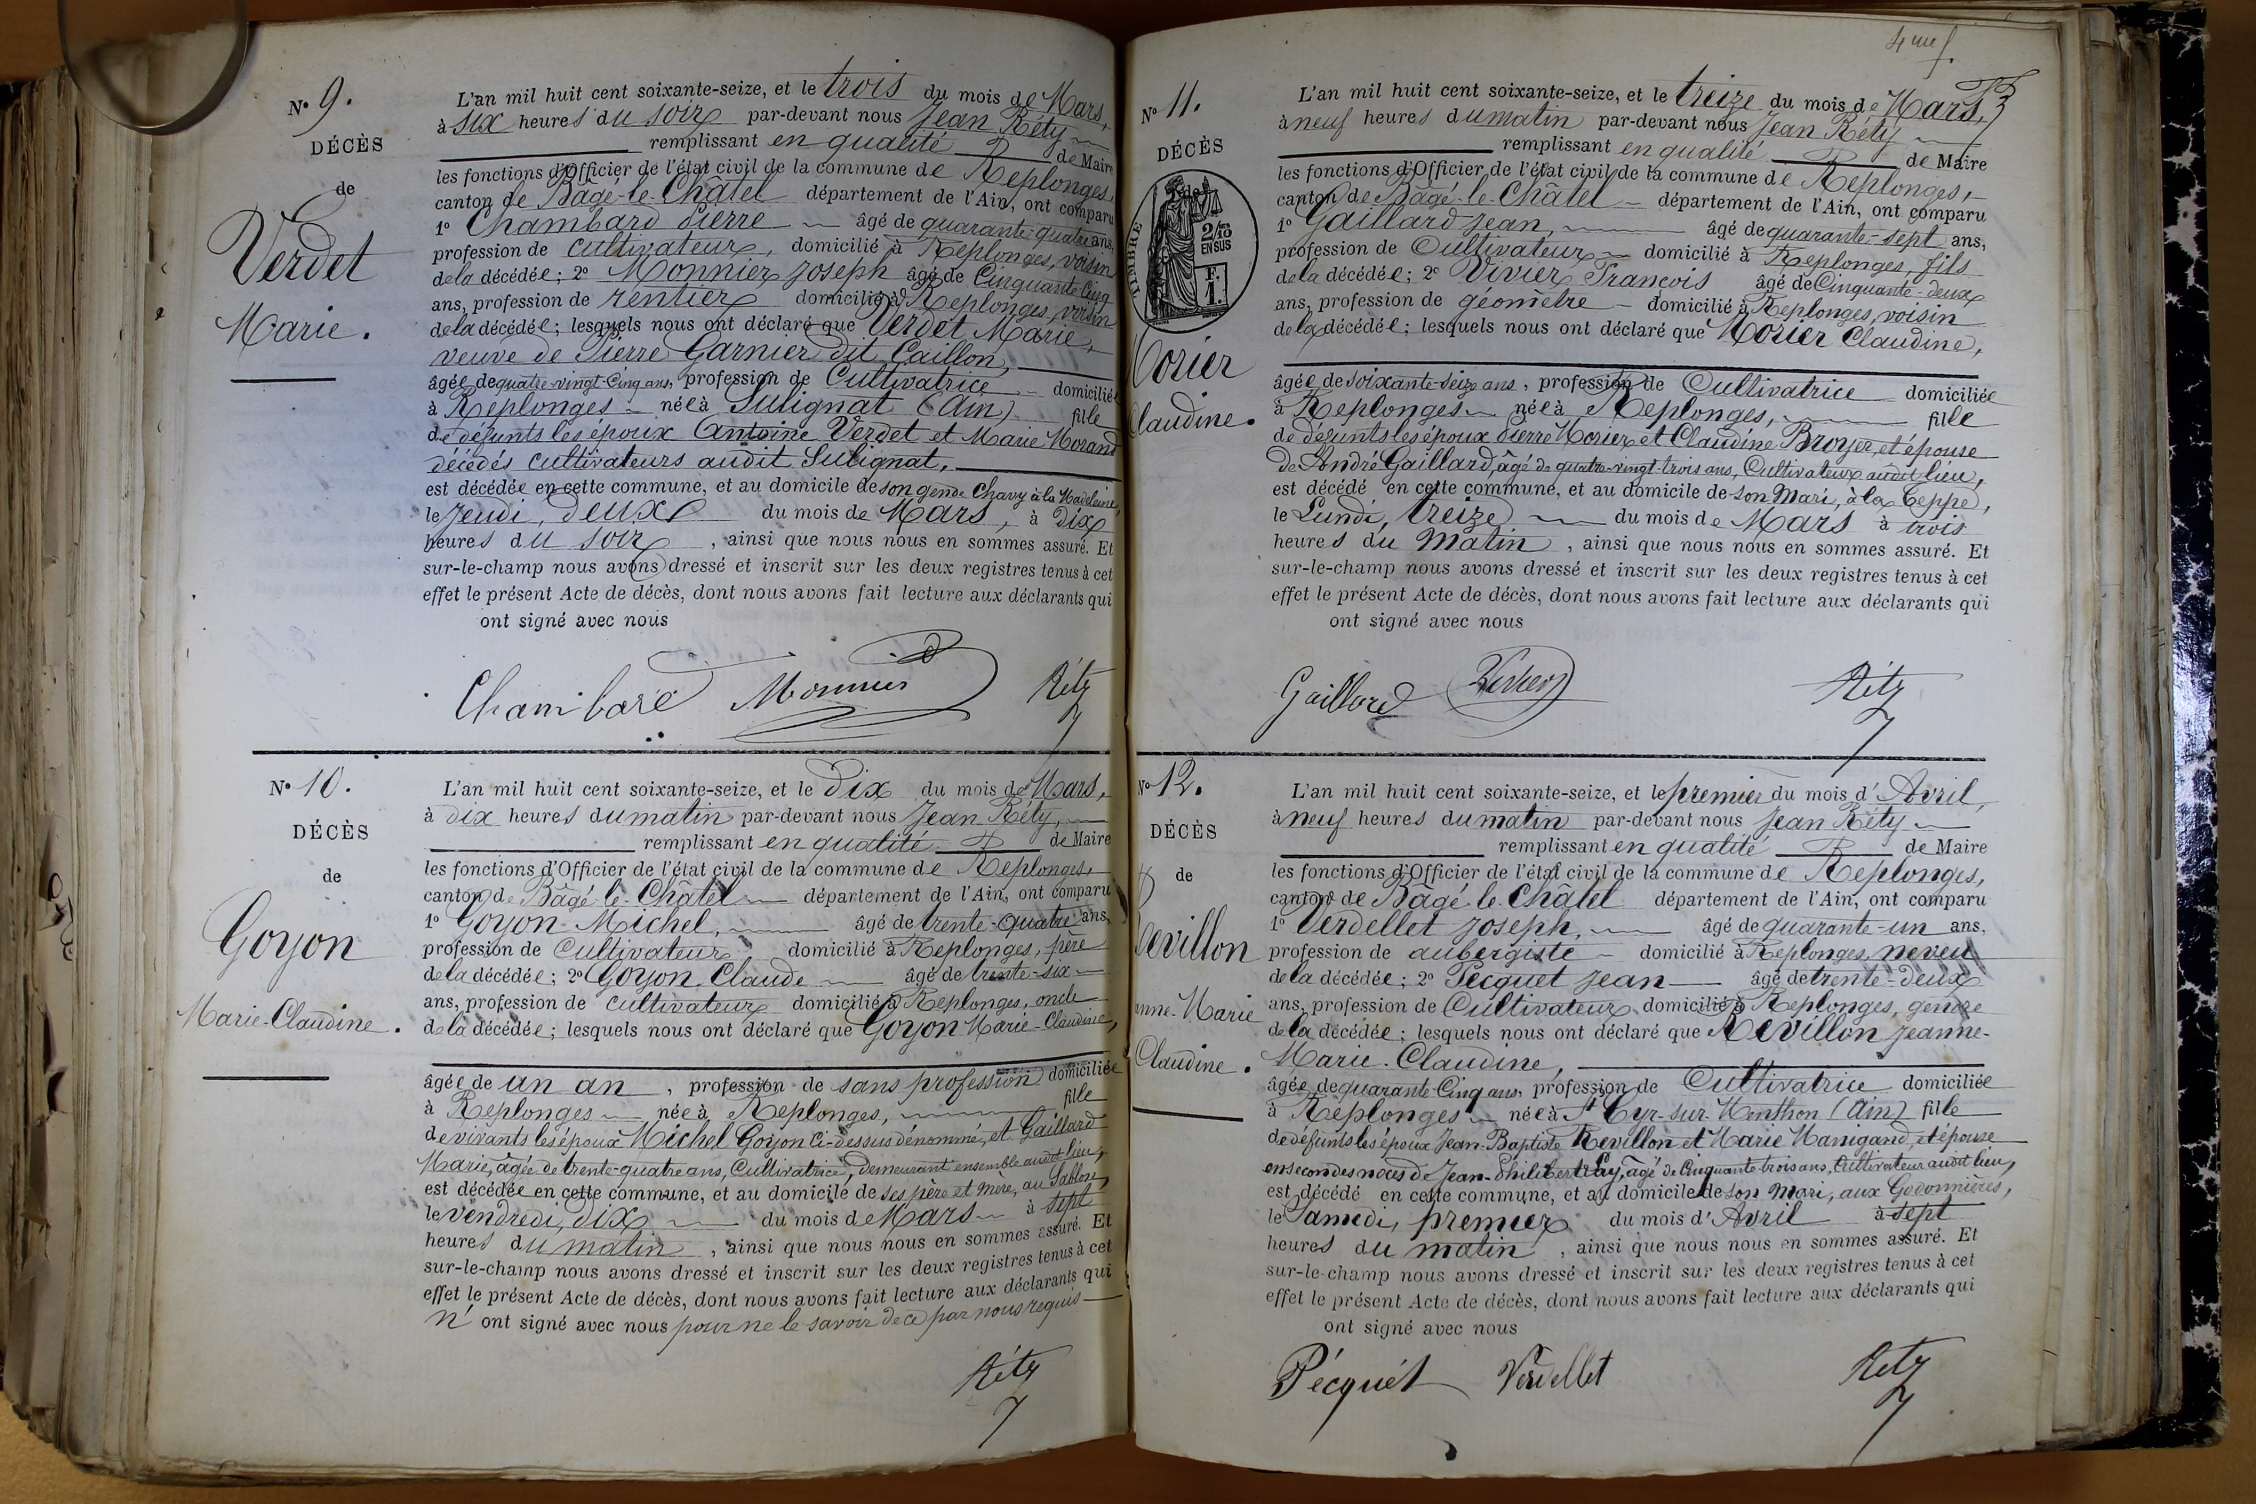 N° 9.
DÉCÈS
de
Verdet
Marie.
L'an mil huit cent soixante-seize, et le trois du mois de Mars,
à six heures du soir par-devant nous Jean Réty
remplissant en qualité de Maire
les fonctions d'Officier de l'état civil de la commune de Replonges,
canton de Bâgé-le-Châtel département de l'Ain, ont comparu
1° Chambard Pierre âgé de quarante-quatre ans,
profession de cultivateur, domicilié à Replonges, voisin
de la décédée; 2° Monnier Joseph âgé de Cinquante cinq
ans, profession de rentier domicilié à Replonges, voisin
de la décédée; lesquels nous ont déclaré que Verdet Marie,
veuve de Pierre Garnier dit Caillon,
âgée de quatre-vingt-cinq ans, profession de Cultivatrice domiciliée
à Replonges née à Sulignat (Ain) fille
de défunts les époux Antoine Verdet et Marie Morand
décédés cultivateurs audit Sulignat,
est décédée en cette commune, et au domicile de son gendre Chavy à la Madeleine,
le Jeudi, deux du mois de Mars, à dix
heures du soir, ainsi que nous nous en sommes assuré. Et
sur-le-champ nous avons dressé et inscrit sur les deux registres tenus à cet
effet le présent Acte de décès, dont nous avons fait lecture aux déclarants qui
ont signé avec nous
Chambard Monnier Réty
N° 10.
DÉCÈS
de
Goyon
Marie-Claudine.
L'an mil huit cent soixante-seize, et le Dix du mois de Mars,
à dix heures du matin par-devant nous Jean Réty,
remplissant en qualité de Maire
les fonctions d'Officier de l'état civil de la commune de Replonges,
canton de Bâgé-le-Châtel département de l'Ain, ont comparu
1° Goyon Michel, âgé de trente-quatre ans,
profession de Cultivateur domicilié à Replonges, père
de la décédée; 2° Goyon Claude âgé de trente-six
ans, profession de cultivateur domicilié à Replonges, oncle
de la décédée; lesquels nous ont déclaré que Goyon Marie-Claudine,
âgée de un an, profession de sans profession domiciliée
à Replonges née à Replonges, fille
de vivants les époux Michel Goyon ci-dessus dénommé, et Gaillard
Marie, âgée de trente-quatre ans, Cultivatrice, demeurant ensemble audit lieu,
est décédée en cette commune, et au domicile de ses père et mère, au Sablon,
le vendredi, dix du mois de Mars à sept
heures du matin, ainsi que nous nous en sommes assuré. Et
sur-le-champ nous avons dressé et inscrit sur les deux registres tenus à cet
effet le présent Acte de décès, dont nous avons fait lecture aux déclarants qui
n' ont signé avec nous pour ne le savoir de ce par nous requis
Réty
4me f.
N° 11.
DÉCÈS
de
TIMBRE
2/10
EN SUS
F.
1.
Morier
Claudine.
L'an mil huit cent soixante-seize, et le treize du mois de Mars,
à neuf heures du matin par-devant nous Jean Réty
remplissant en qualité de Maire
les fonctions d'Officier de l'état civil de la commune de Replonges,
canton de Bâgé-le-Châtel département de l'Ain, ont comparu
1° Gaillard Jean, âgé de quarante-sept ans,
profession de Cultivateur domicilié à Replonges, fils
de la décédée; 2° Vivier François âgé de Cinquante-deux
ans, profession de géomètre domicilié à Replonges, voisin
de la décédée; lesquels nous ont déclaré que Morier Claudine,
âgée de soixante-seize ans, profession de Cultivatrice domiciliée
à Replonges née à Replonges, fille
de défunts les époux Pierre Morier et Claudine Broyer, et épouse
de André Gaillard, âgé de quatre-vingt-trois ans, Cultivateur audit lieu,
est décédé en cette commune, et au domicile de son Mari, à la Ceppe,
le Lundi, treize du mois de Mars à trois
heures du Matin, ainsi que nous nous en sommes assuré. Et
sur-le-champ nous avons dressé et inscrit sur les deux registres tenus à cet
effet le présent Acte de décès, dont nous avons fait lecture aux déclarants qui
ont signé avec nous
Gaillard Vivier Réty
N° 12.
DÉCÈS
de
Revillon
anne-Marie
Claudine.
L'an mil huit cent soixante-seize, et le premier du mois d'Avril,
à neuf heures du matin par-devant nous Jean Réty
remplissant en qualité de Maire
les fonctions d'Officier de l'état civil de la commune de Replonges,
canton de Bâgé-le-Châtel département de l'Ain, ont comparu
1° Verdellet Joseph, âgé de quarante-un ans,
profession de aubergiste domicilié à Replonges, neveu
de la décédée; 2° Pecquet Jean âgé de trente-deux
ans, profession de Cultivateur domicilié à Replonges, gendre
de la décédée; lesquels nous ont déclaré que Revillon Jeanne-
Marie-Claudine,
âgée de quarante-cinq ans, profession de Cultivatrice domiciliée
à Replonges née à St Cyr-sur-Menthon (Ain) fille
de défunts les époux Jean-Baptiste Revillon et Marie Manigand, et épouse
en secondes noces de Jean-Philibert Lay, âgé de Cinquante-trois ans, Cultivateur audit lieu,
est décédé en cette commune, et au domicile de son Mari, aux Godonnières,
le Samedi, premier du mois d'Avril à sept
heures du matin, ainsi que nous nous en sommes assuré. Et
sur-le-champ nous avons dressé et inscrit sur les deux registres tenus à cet
effet le présent Acte de décès, dont nous avons fait lecture aux déclarants qui
ont signé avec nous
Pécquet Verdellet Réty